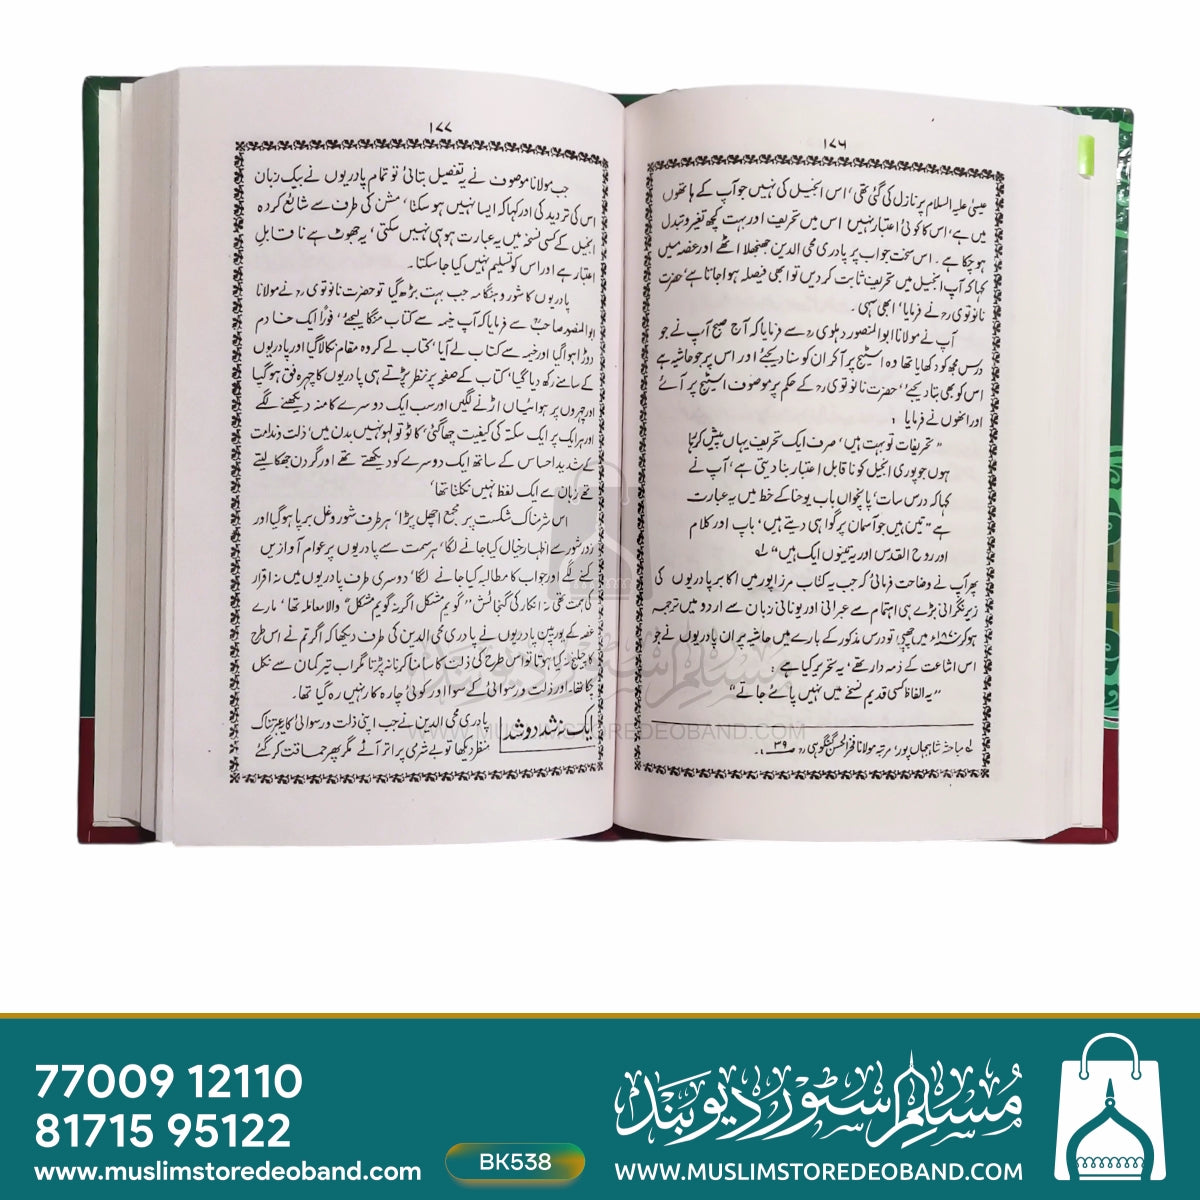 ۱۷۶
عیسیٰ علیہ السلام پر نازل کی گئی تھی، اس انجیل کی نہیں جو آپ کے ہاتھوں
میں ہے، اس کا کوئی اعتبار نہیں اس میں تحریف اور بہت کچھ تغیر و تبدل
ہو چکا ہے۔ اس سخت جواب پر پادری محی الدین جھنجھلا اٹھے اور غصہ میں
کہا کہ آپ انجیل میں تحریف ثابت کر دیں تو ابھی فیصلہ ہوا جاتا ہے، حضرت
نانوتوی رہ نے فرمایا، ابھی سہی۔
آپ نے مولانا ابو المنصور دہلوی رہ سے فرمایا کہ آج صبح آپ نے جو
درس مجھ کو دکھایا تھا وہ اسٹیج پر آ کر ان کو سنا دیجئے اور اس پر جو حاشیہ ہے
اس کو بھی بتا دیجئے، حضرت نانوتوی رہ کے حکم پر موصوف اسٹیج پر آئے
اور انھوں نے فرمایا :
”تحریفات تو بہت ہیں، صرف ایک تحریف یہاں پیش کر رہا
ہوں جو پوری انجیل کو نا قابل اعتبار بنا دیتی ہے، آپ نے
کہا کہ درس سات، پانچواں باب یوحنا کے خط میں یہ عبارت
ہے ”تین ہیں جو آسمان پر گواہی دیتے ہیں، باپ اور کلام
اور روح القدس اور یہ تینوں ایک ہیں“ لہ
پھر آپ نے وضاحت فرمائی کہ جب یہ کتاب مرزا پور میں اکابر پادریوں کی
زیر نگرانی بڑے ہی اہتمام سے عبرانی اور یونانی زبان سے اردو میں ترجمہ
ہو کر ۱۸۷۰ء میں چھپی، تو درس مذکور کے بارے میں حاشیہ پر ان پادریوں نے جو
اس اشاعت کے ذمہ دار تھے، یہ تحریر کیا ہے :
”یہ الفاظ کسی قدیم نسخے میں نہیں پائے جاتے“
لہ مباحثہ شاہجہاں پور، مرتبہ مولانا فخر الحسن گنگوہی رہ صـ ۳۹۔
۱۷۷
جب مولانا موصوف نے یہ تفصیل بتائی تو تمام پادریوں نے بیک زبان
اس کی تردید کی اور کہا کہ ایسا نہیں ہو سکتا، مشن کی طرف سے شائع کردہ
انجیل کے کسی نسخہ میں یہ عبارت ہو ہی نہیں سکتی، یہ جھوٹ ہے نا قابل
اعتبار ہے اور اس کو تسلیم نہیں کیا جا سکتا۔
پادریوں کا شور و ہنگامہ جب بہت بڑھ گیا تو حضرت نانوتوی رہ نے مولانا
ابو المنصور صاحبؒ سے فرمایا کہ آپ خیمہ سے کتاب منگا لیجئے، فوراً ایک خادم
دوڑا ہوا گیا اور خیمہ سے کتاب لے آیا، کتاب لے کر وہ مقام نکالا گیا اور پادریوں
کے سامنے رکھ دیا گیا، کتاب کے صفحہ پر نظر پڑتے ہی پادریوں کا چہرہ فق ہو گیا
اور چہروں پر ہوائیاں اڑنے لگیں اور سب ایک دوسرے کا منہ دیکھنے لگے
اور ہر ایک پر ایک سکتہ کی کیفیت چھا گئی، کاٹو تو لہو نہیں بدن میں، ذلت و ندامت
کے شدید احساس کے ساتھ ایک دوسرے کو دیکھتے تھے اور گردن جھکا لیتے
تھے زبان سے ایک لفظ نہیں نکلتا تھا،
اس شرمناک شکست پر مجمع اچھل پڑا، ہر طرف شور و غل برپا ہو گیا اور
زور شور سے اظہار خیال کیا جانے لگا، ہر سمت سے پادریوں پر عوام آوازیں
کسنے لگے اور جواب کا مطالبہ کیا جانے لگا، دوسری طرف پادریوں میں نہ اقرار
کی ہمت تھی نہ انکار کی گنجائش ”گویم مشکل اگر نہ گویم مشکل“ والا معاملہ تھا، مارے
غصہ کے یورپین پادریوں نے پادری محی الدین کی طرف دیکھا کہ اگر تم نے اس طرح
کا چیلنج نہ کیا ہوتا تو اس طرح کی ذلت کا سامنا کرنا نہ پڑتا مگر اب تیر کمان سے نکل
چکا تھا۔ اور ذلت و رسوائی کے سوا اور کوئی چارہ کار نہیں رہ گیا تھا۔
ایک نہ شد دو شد
پادری محی الدین نے جب اپنی ذلت و رسوائی کا یہ عبرتناک
منظر دیکھا تو بے شرمی پر اتر آئے مگر پھر حماقت کر گئے
مسلم سٹور دیوبند
WWW.MUSLIMSTOREDEOBAND.COM
77009 12110
81715 95122
www.muslimstoredeoband.com
BK538
مسلم سٹور دیوبند
WWW.MUSLIMSTOREDEOBAND.COM